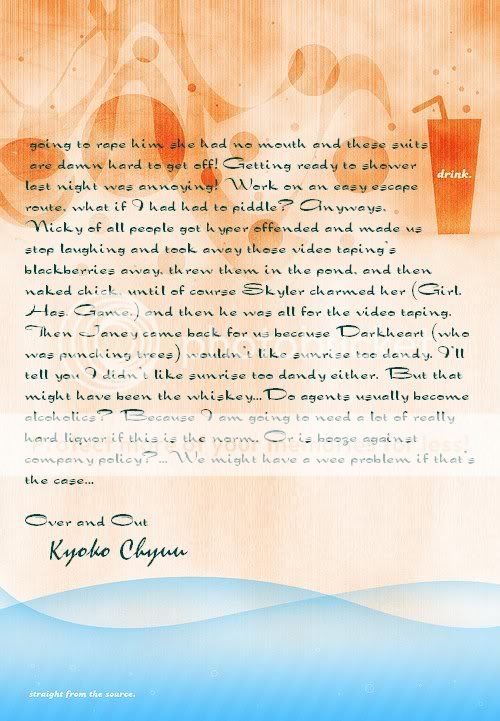 going to rape him she had no mouth and these suits
are damn hard to get off! Getting ready to shower
drink.
last night was annoying! Work on an easy escape
route, what if I had had to piddle? Anyways,
Nicky of all people got hyper offended and made us
stop laughing and took away those video taping's
blackberries away, threw them in the pond, and then
naked chick, until of course Skyler charmed her (Girl.
Has. Game.) and then he was all for the video taping.
Then Janey came back for us because Darkheart (who
was punching trees) wouldn't like sunrise too dandy. I'll
tell you I didn't like sunrise too dandy either. But that
might have been the whiskey...Do agents usually become
alcoholics? Because I am going to need a lot of really
hard liquor if this is the norm. Or is booze against
company policy?...We might have a wee problem if that's
the case...
Over and Out
Kyoko Chyuu
straight from the source.